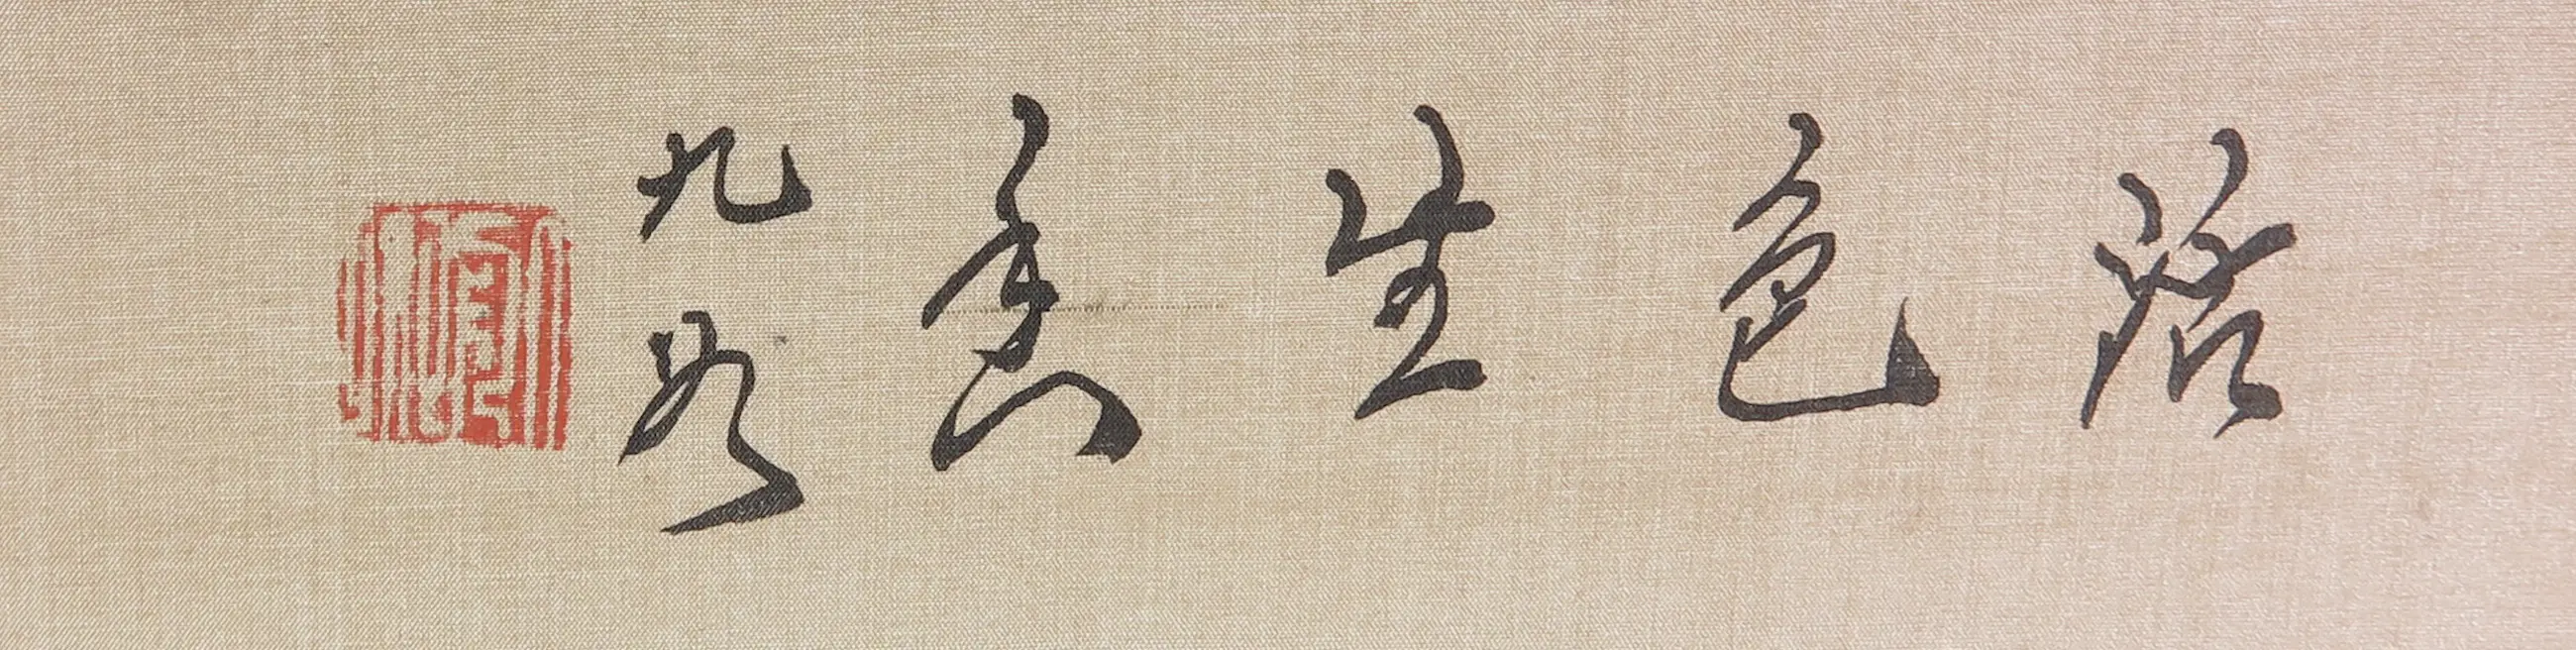 落色生香
九如